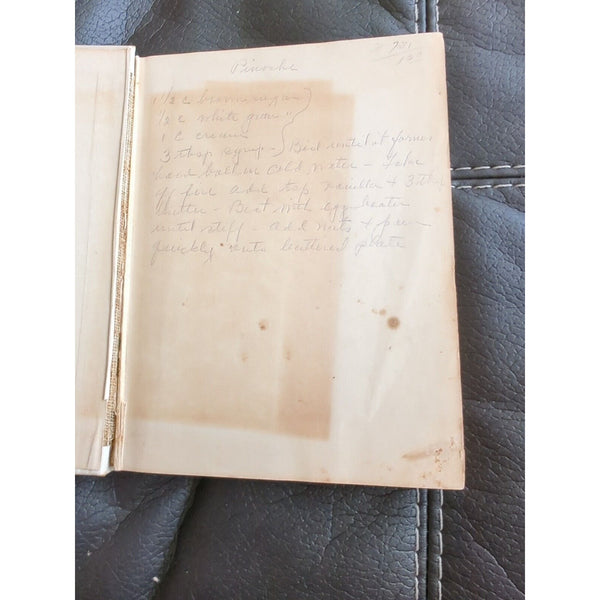 Pinoche
1 1/2 c brown sugar
1/2 c white "
1 c cream
3 tbsp syrup - Boil until it forms
hard ball in cold water - Take
off fire add tsp vanilla + 3 tbsp
butter - Beat with egg beater
until stiff - add nuts + pour
quickly into buttered plate